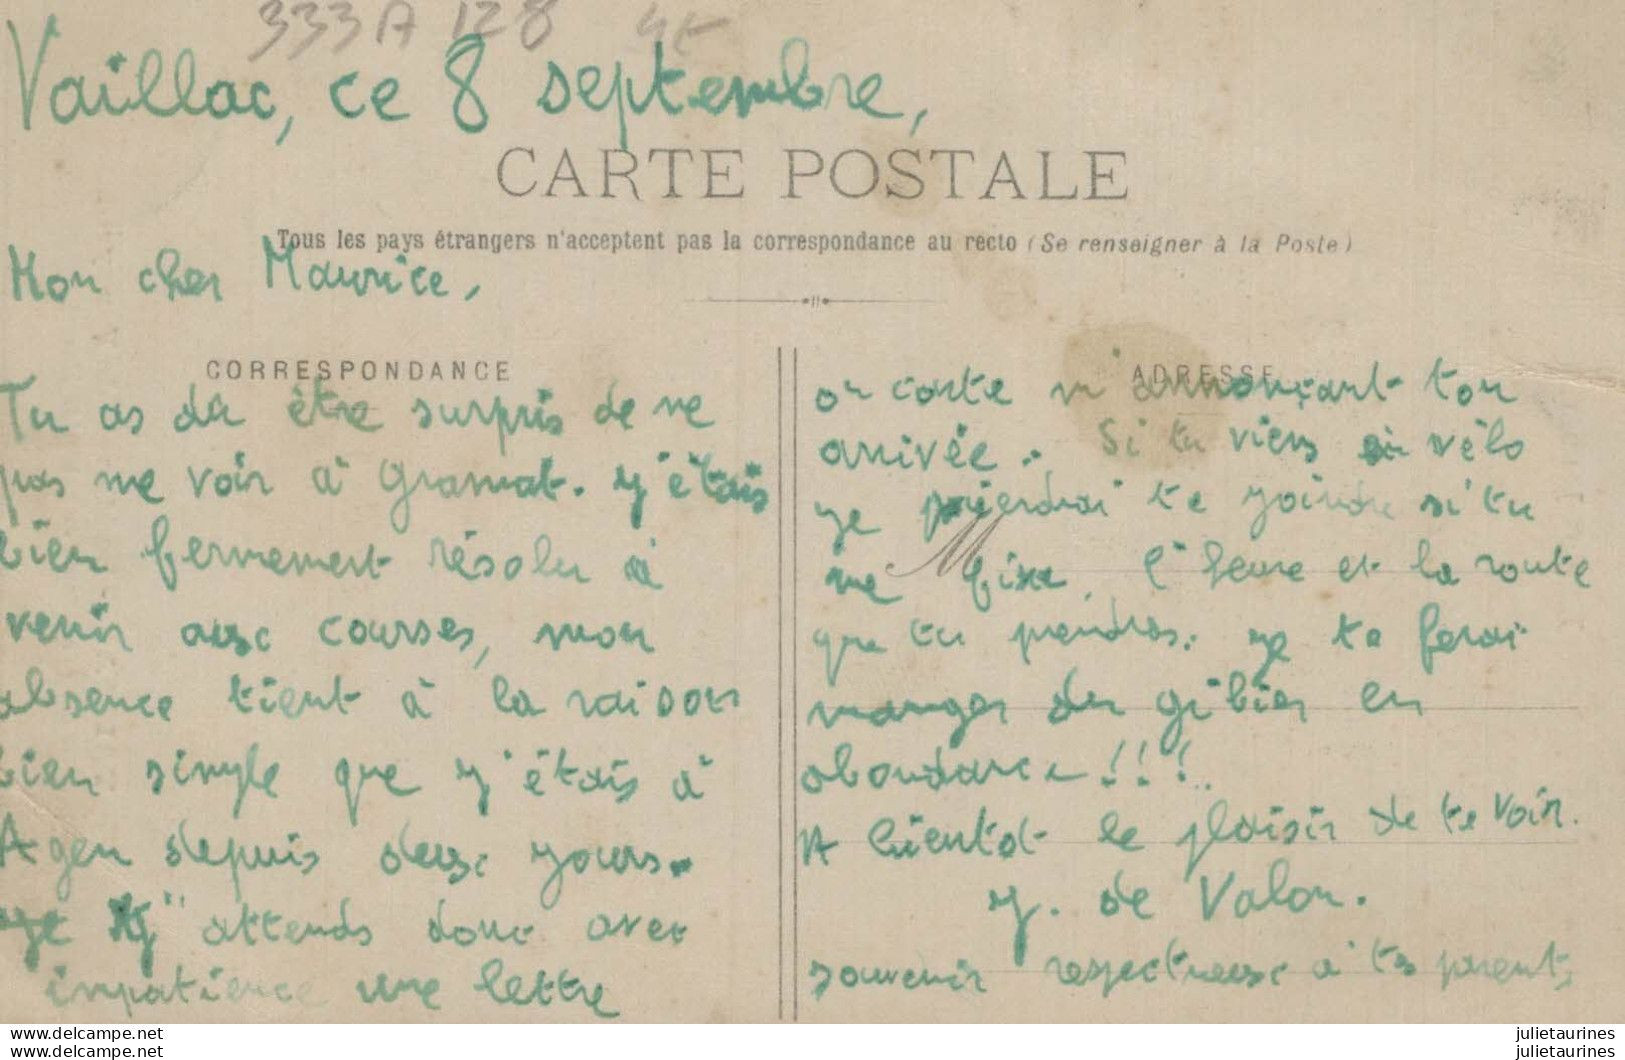 333A 128
Vaillac, ce 8 septembre,
CARTE POSTALE
Tous les pays étrangers n'acceptent pas la correspondance au recto (Se renseigner à la Poste)
Mon cher Maurice,
CORRESPONDANCE
Tu as dû être surpris de ne
pas me voir à Gramat. J'étais
bien fermement résolu à
venir aux courses, mon
absence tient à la raison
bien simple que j'étais à
Agen depuis deux jours.
Je attends donc avec
impatience une lettre
ADRESSE
ou carte m'annonçant ton
arrivée. Si tu viens en vélo
je viendrai te joindre si tu
M
me fixe l'heure et la route
que tu prendras. Je te ferai
manger du gibier en
abondance !!!
A bientôt le plaisir de te voir.
J. de Valon.
souvenir respectueux à tes parents
julietaurines.net
julietaurines.net
julietaurines
julietaurines